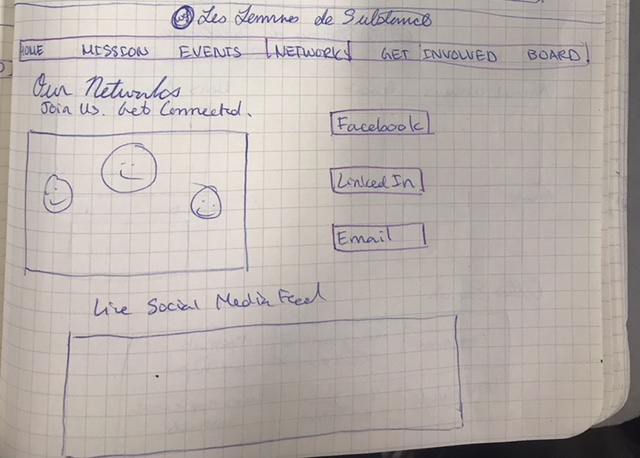 Les Femmes de Substance
HOME MISSION EVENTS NETWORKS GET INVOLVED BOARD
Our Networks
Join Us. Get Connected.
Facebook
LinkedIn
Email
Live Social Media Feed